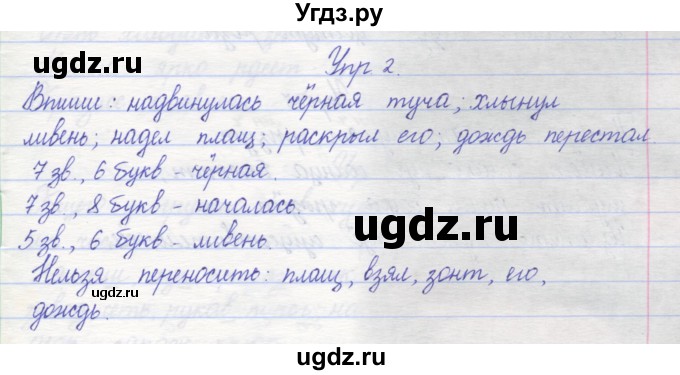 Угдз.ру
ugdz.ru
Упр 2.
Впиши: надвинулась чёрная туча; хлынул
ливень; надел плащ; раскрыл его; дождь перестал.
7 зв., 6 букв - чёрная.
7 зв., 8 букв - началась.
5 зв., 6 букв - ливень.
ugdz.ru
ugdz.ru
Нельзя переносить: плащ, взял, зонт, его,
ugdz.ru
дождь.
ugdz.ru
ugdz.ru